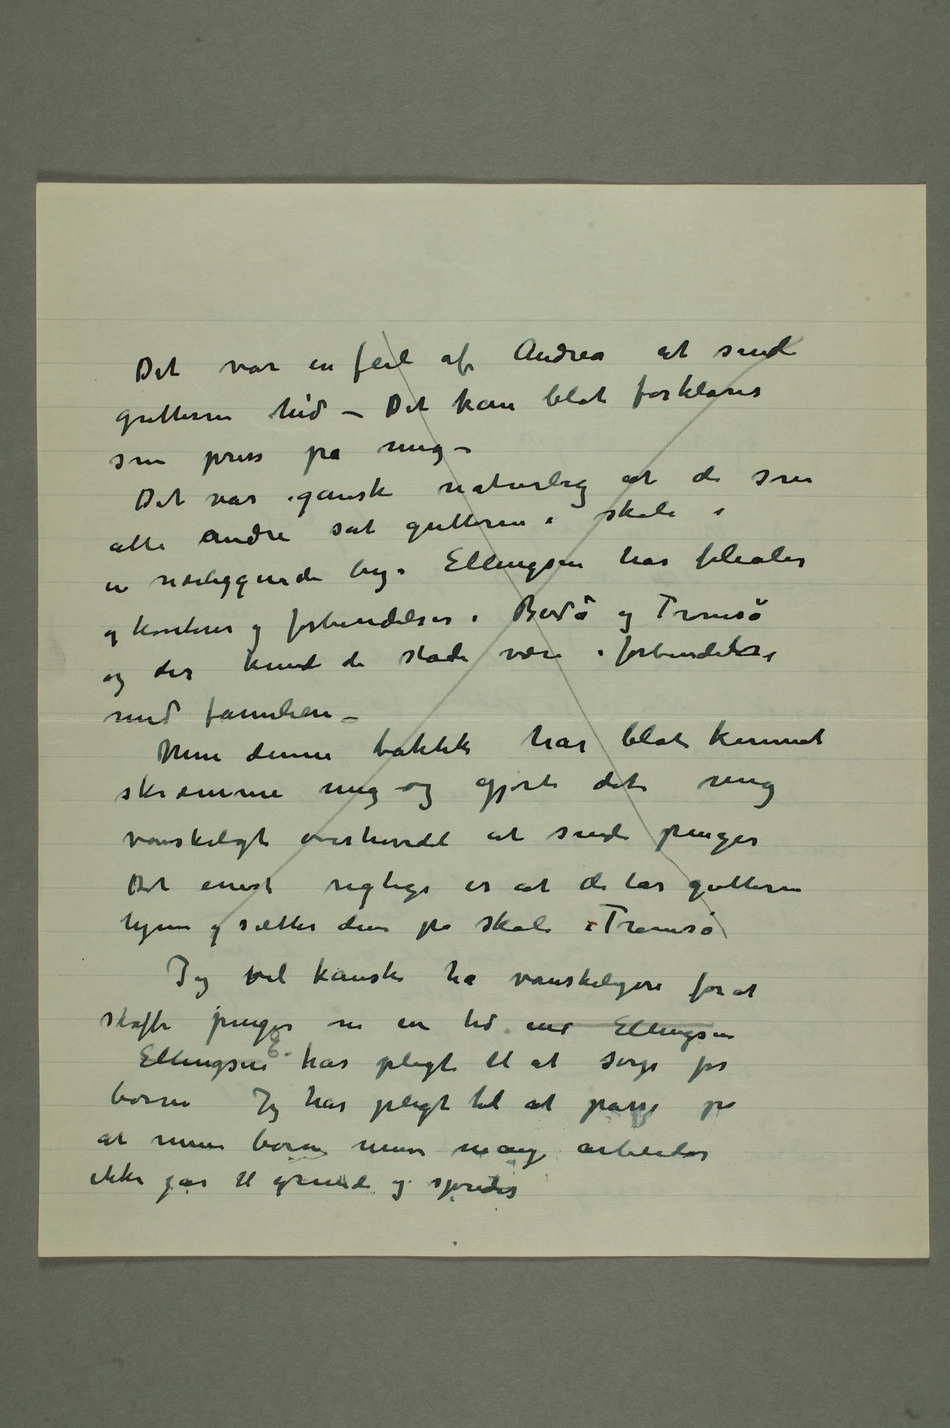 Det var en feil af Andrea at sende
gutterne hid – Det kan blot forklares
som press på mig –
Det var ganske naturlig at de som
alle andre sat gutterne i skole i
en nærliggende by. Ellingsen har filialer
og kontorer og forbindelser i Bodö og Tromsö
og der kunde de stadi være i forbindelse
med familien –
Men denne taktik har blot kunnet
skræmme mig og gjort det mig
vanskeligt overhovedet at sende penger
Det eneste rigtige er at de tar gutterne
hjem og sætter dem på skole i Tromsö
Jeg vil kanske ha vanskeligere for at
skaffe penger nu en tid end Ellingsen
Ellingsen E. har pligt til at sørge for
børnene Jeg har pligt til at passe på
at mine børn mine mange arbeider
ikke går til grunde og spredes